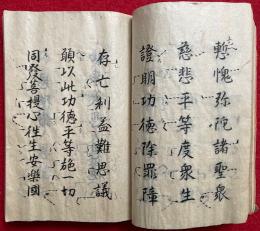 慙愧弥陀諸聖衆
慈悲平等度衆生
證明功徳除罪障
存亡利益難思議
願以此功徳平等施一切
同發菩提心徃生安樂國